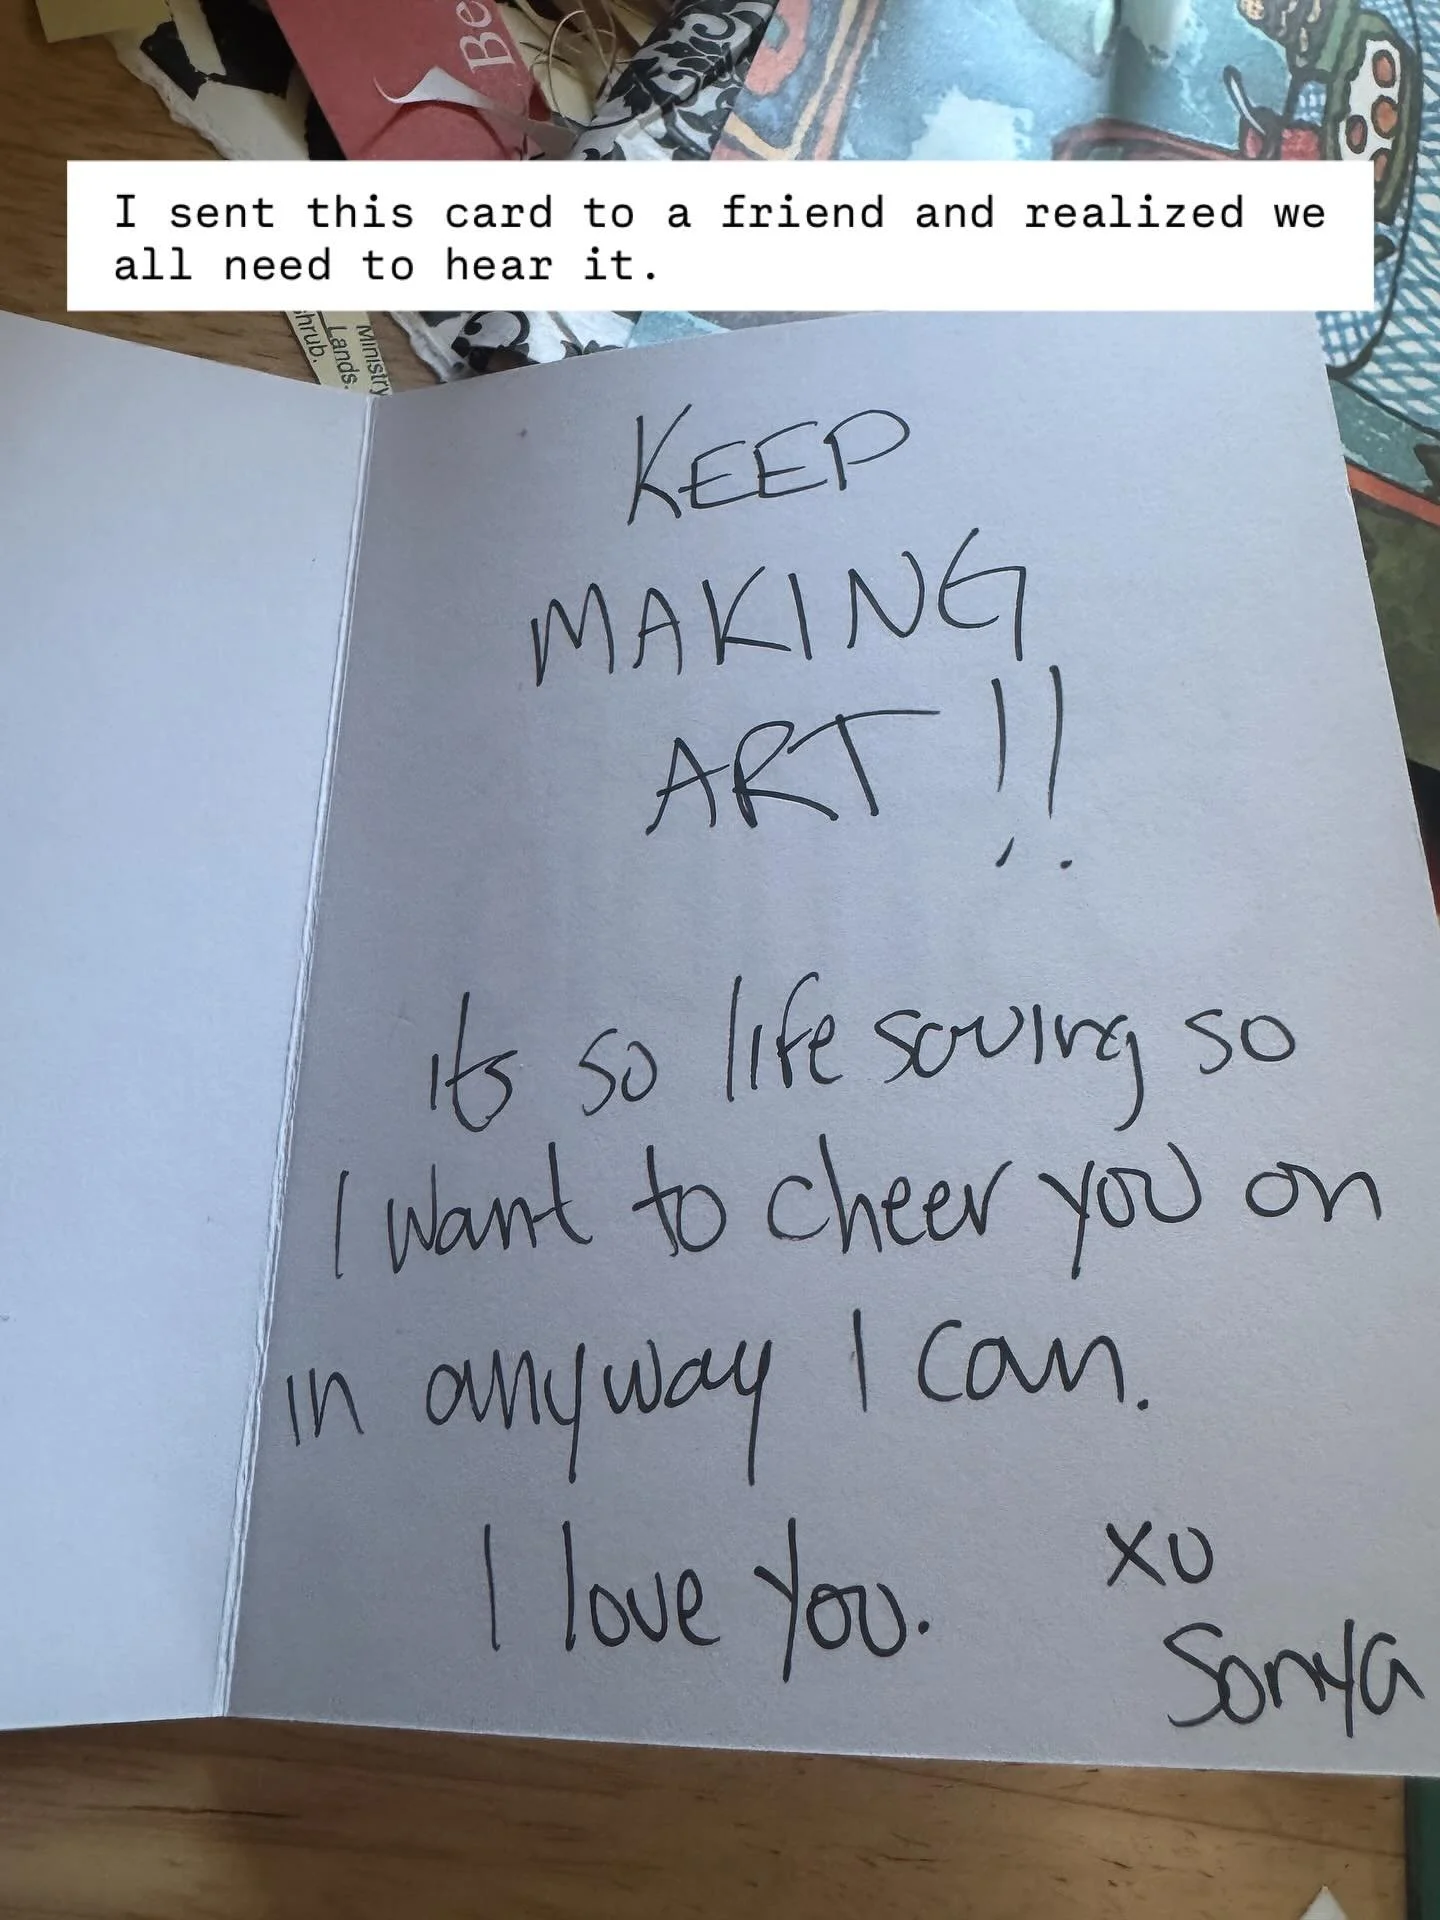 Be
I sent this card to a friend and realized we
all need to hear it.
Ministry
Lands.
hrub.
KEEP
MAKING
ART!!
its so life saving so
I want to cheer you on
in anyway I can.
I love you.
xo
Sonya